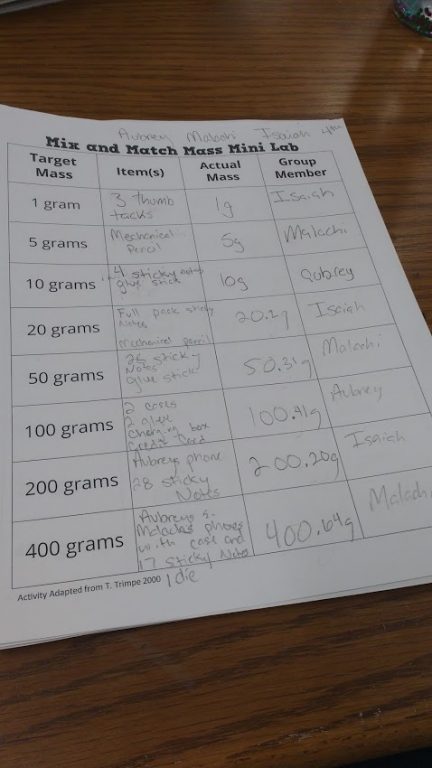 Aubrey Malachi Isaiah 4th
Mix and Match Mass Mini Lab
Target Mass Item(s) Actual Mass Group Member
1 gram 3 thumb tacks 1g Isaiah
5 grams Mechanical Pencil 5g Malachi
10 grams 4 sticky notes glue stick 10g Aubrey
20 grams Full pack sticky Notes Mechanical pencil 20.2g Isaiah
50 grams 26 sticky Notes Glue stick 50.31g Malachi
100 grams 2 cases 2 glue Charging box Credit Card 100.41g Aubrey
200 grams Aubreys phone 28 sticky Notes 200.20g Isaiah
400 grams Aubreys & phones with case and 17 sticky Note 1 die 400.64g Malachi
Activity Adapted from T. Trimpe 2000